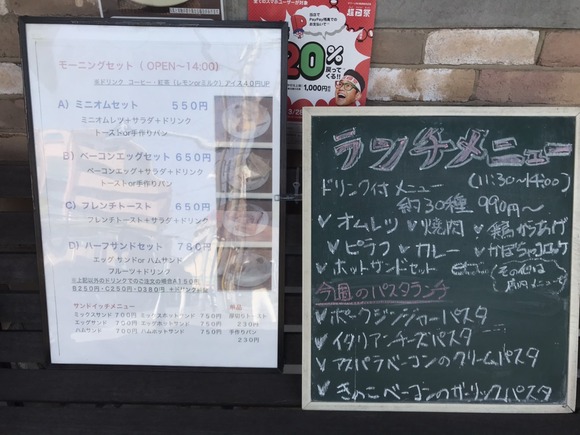 モーニングセット ( OPEN〜14:00)
※ドリンク コーヒー・紅茶 (レモンorミルク) アイス40円UP
A) ミニオムセット 550円
ミニオムレツ+サラダ+ドリンク
トーストor手作りパン
B) ベーコンエッグセット 650円
ベーコンエッグ+サラダ+ドリンク
トーストor手作りパン
C) フレンチトースト 650円
フレンチトースト+サラダ+ドリンク
D) ハーフサンドセット 780円
エッグサンドor ハムサンド
フルーツ+ドリンク
※上記以外のドリンクでのご注文の場合A150円
B250円・C250円・D380円 +ドリンク代金
サンドイッチメニュー 単品
ミックスサンド 700円 ミックスホットサンド 750円 厚切りトースト
エッグサンド 700円 エッグホットサンド 750円 230円
ハムサンド 700円 ハムホットサンド 750円 手作りパン
230円
全てのスマホユーザーが対象
当店で
PayPay残高での
お支払いで
超回祭
20%
戻って
くる!!
1,000円
ランチメニュー
(11:30〜14:00)
ドリンク付メニュー
約30種 990円〜
✓オムレツ ✓焼肉 ✓鶏からあげ
✓ピラフ ✓カレー ✓かぼちゃコロッケ
✓ホットサンドセット etc...
その他は
店内メニューで
今週のパスタランチ
✓ポークジンジャーパスタ
✓イタリアンチーズパスタ
✓アスパラベーコンのクリームパスタ
✓きのこベーコンのガーリックパスタ